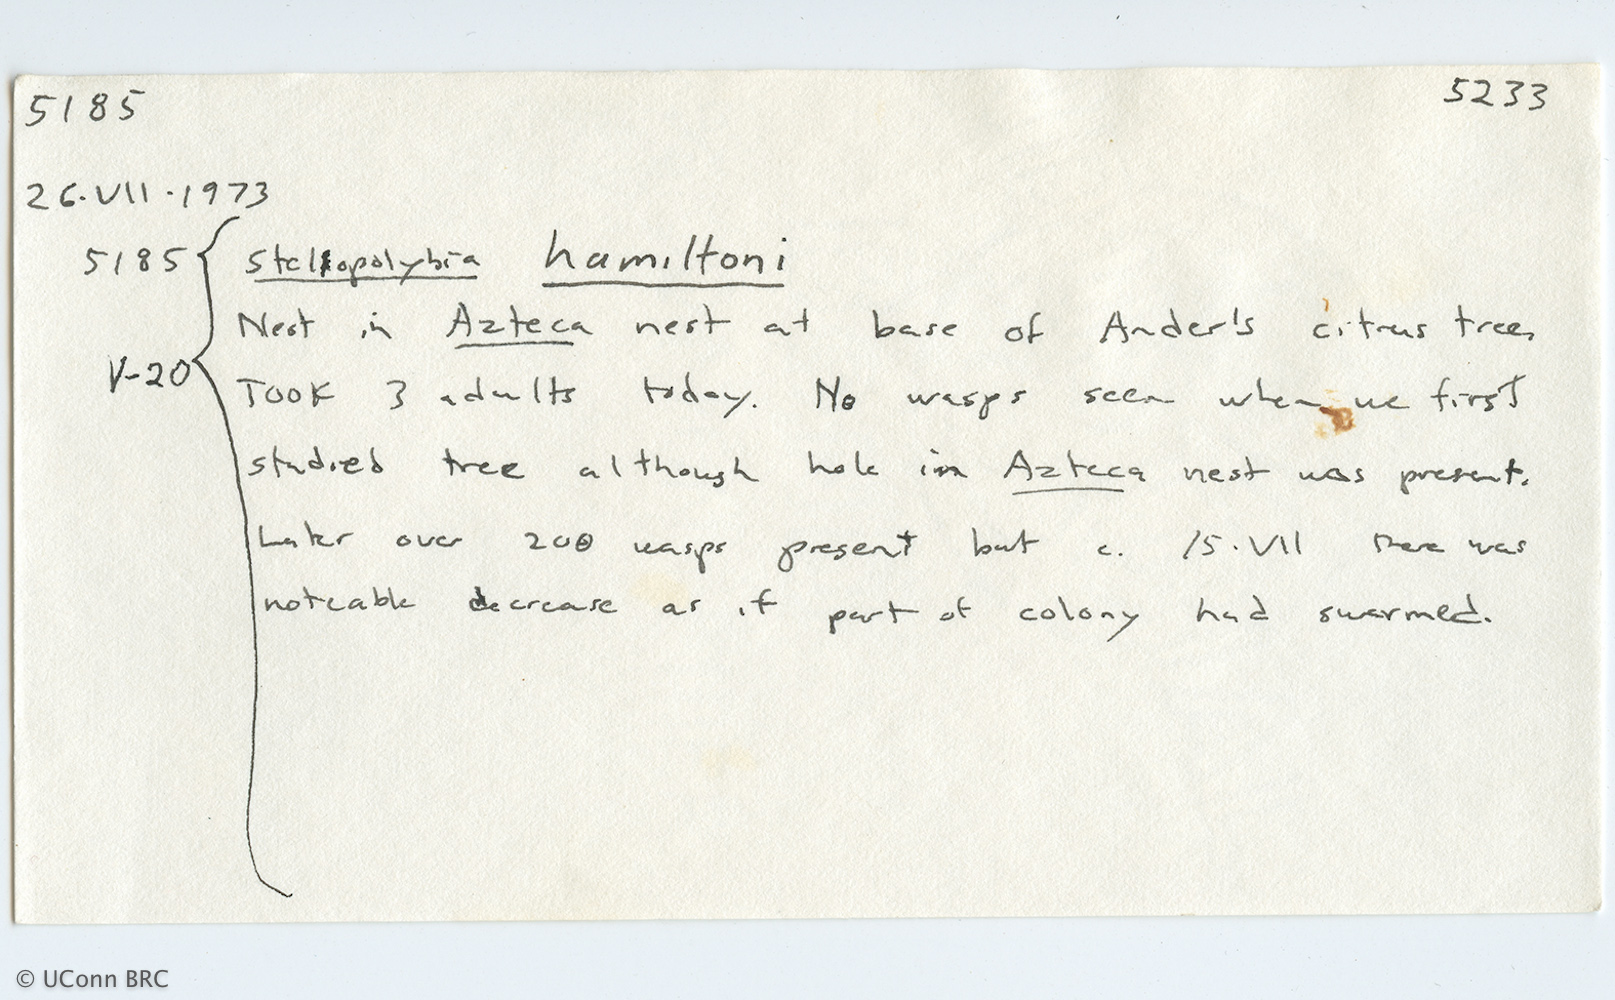 5185 5233
26.VII.1973
5185 Stelopolybia hamiltoni
Nest in Azteca nest at base of Ander's citrus tree,
V-20 TOOK 3 adults today. No wasps seen when we first
studied tree although hole in Azteca nest was present.
Later over 200 wasps present but c. 15.VII there was
noteable decrease as if part of colony had swarmed.
© UConn BRC